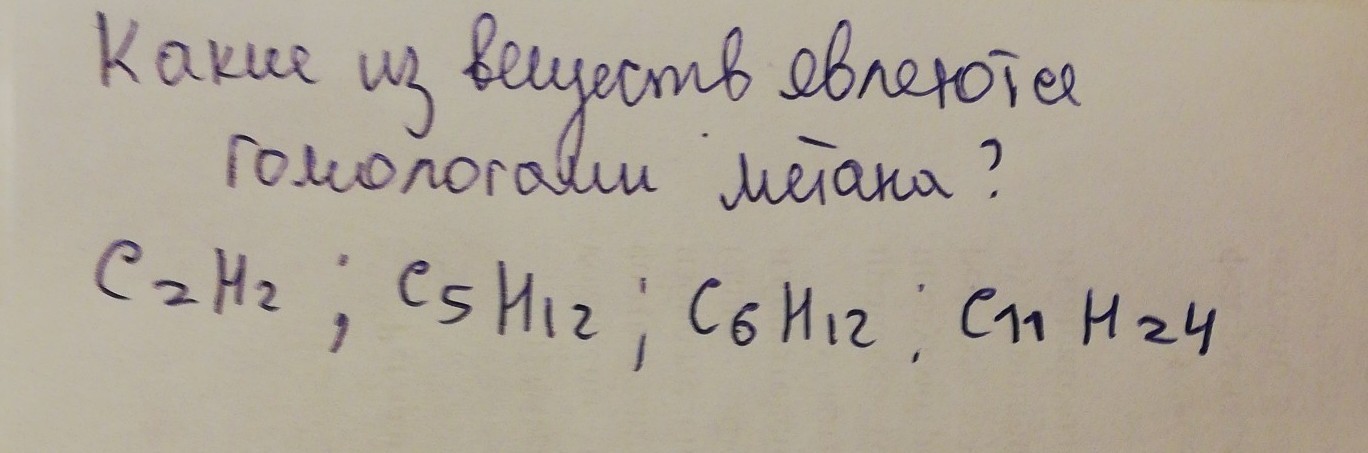 Какие из веществ явлеются
гомологами метана?
C₂H₂; C₅H₁₂; C₆H₁₂; C₁₁H₂₄